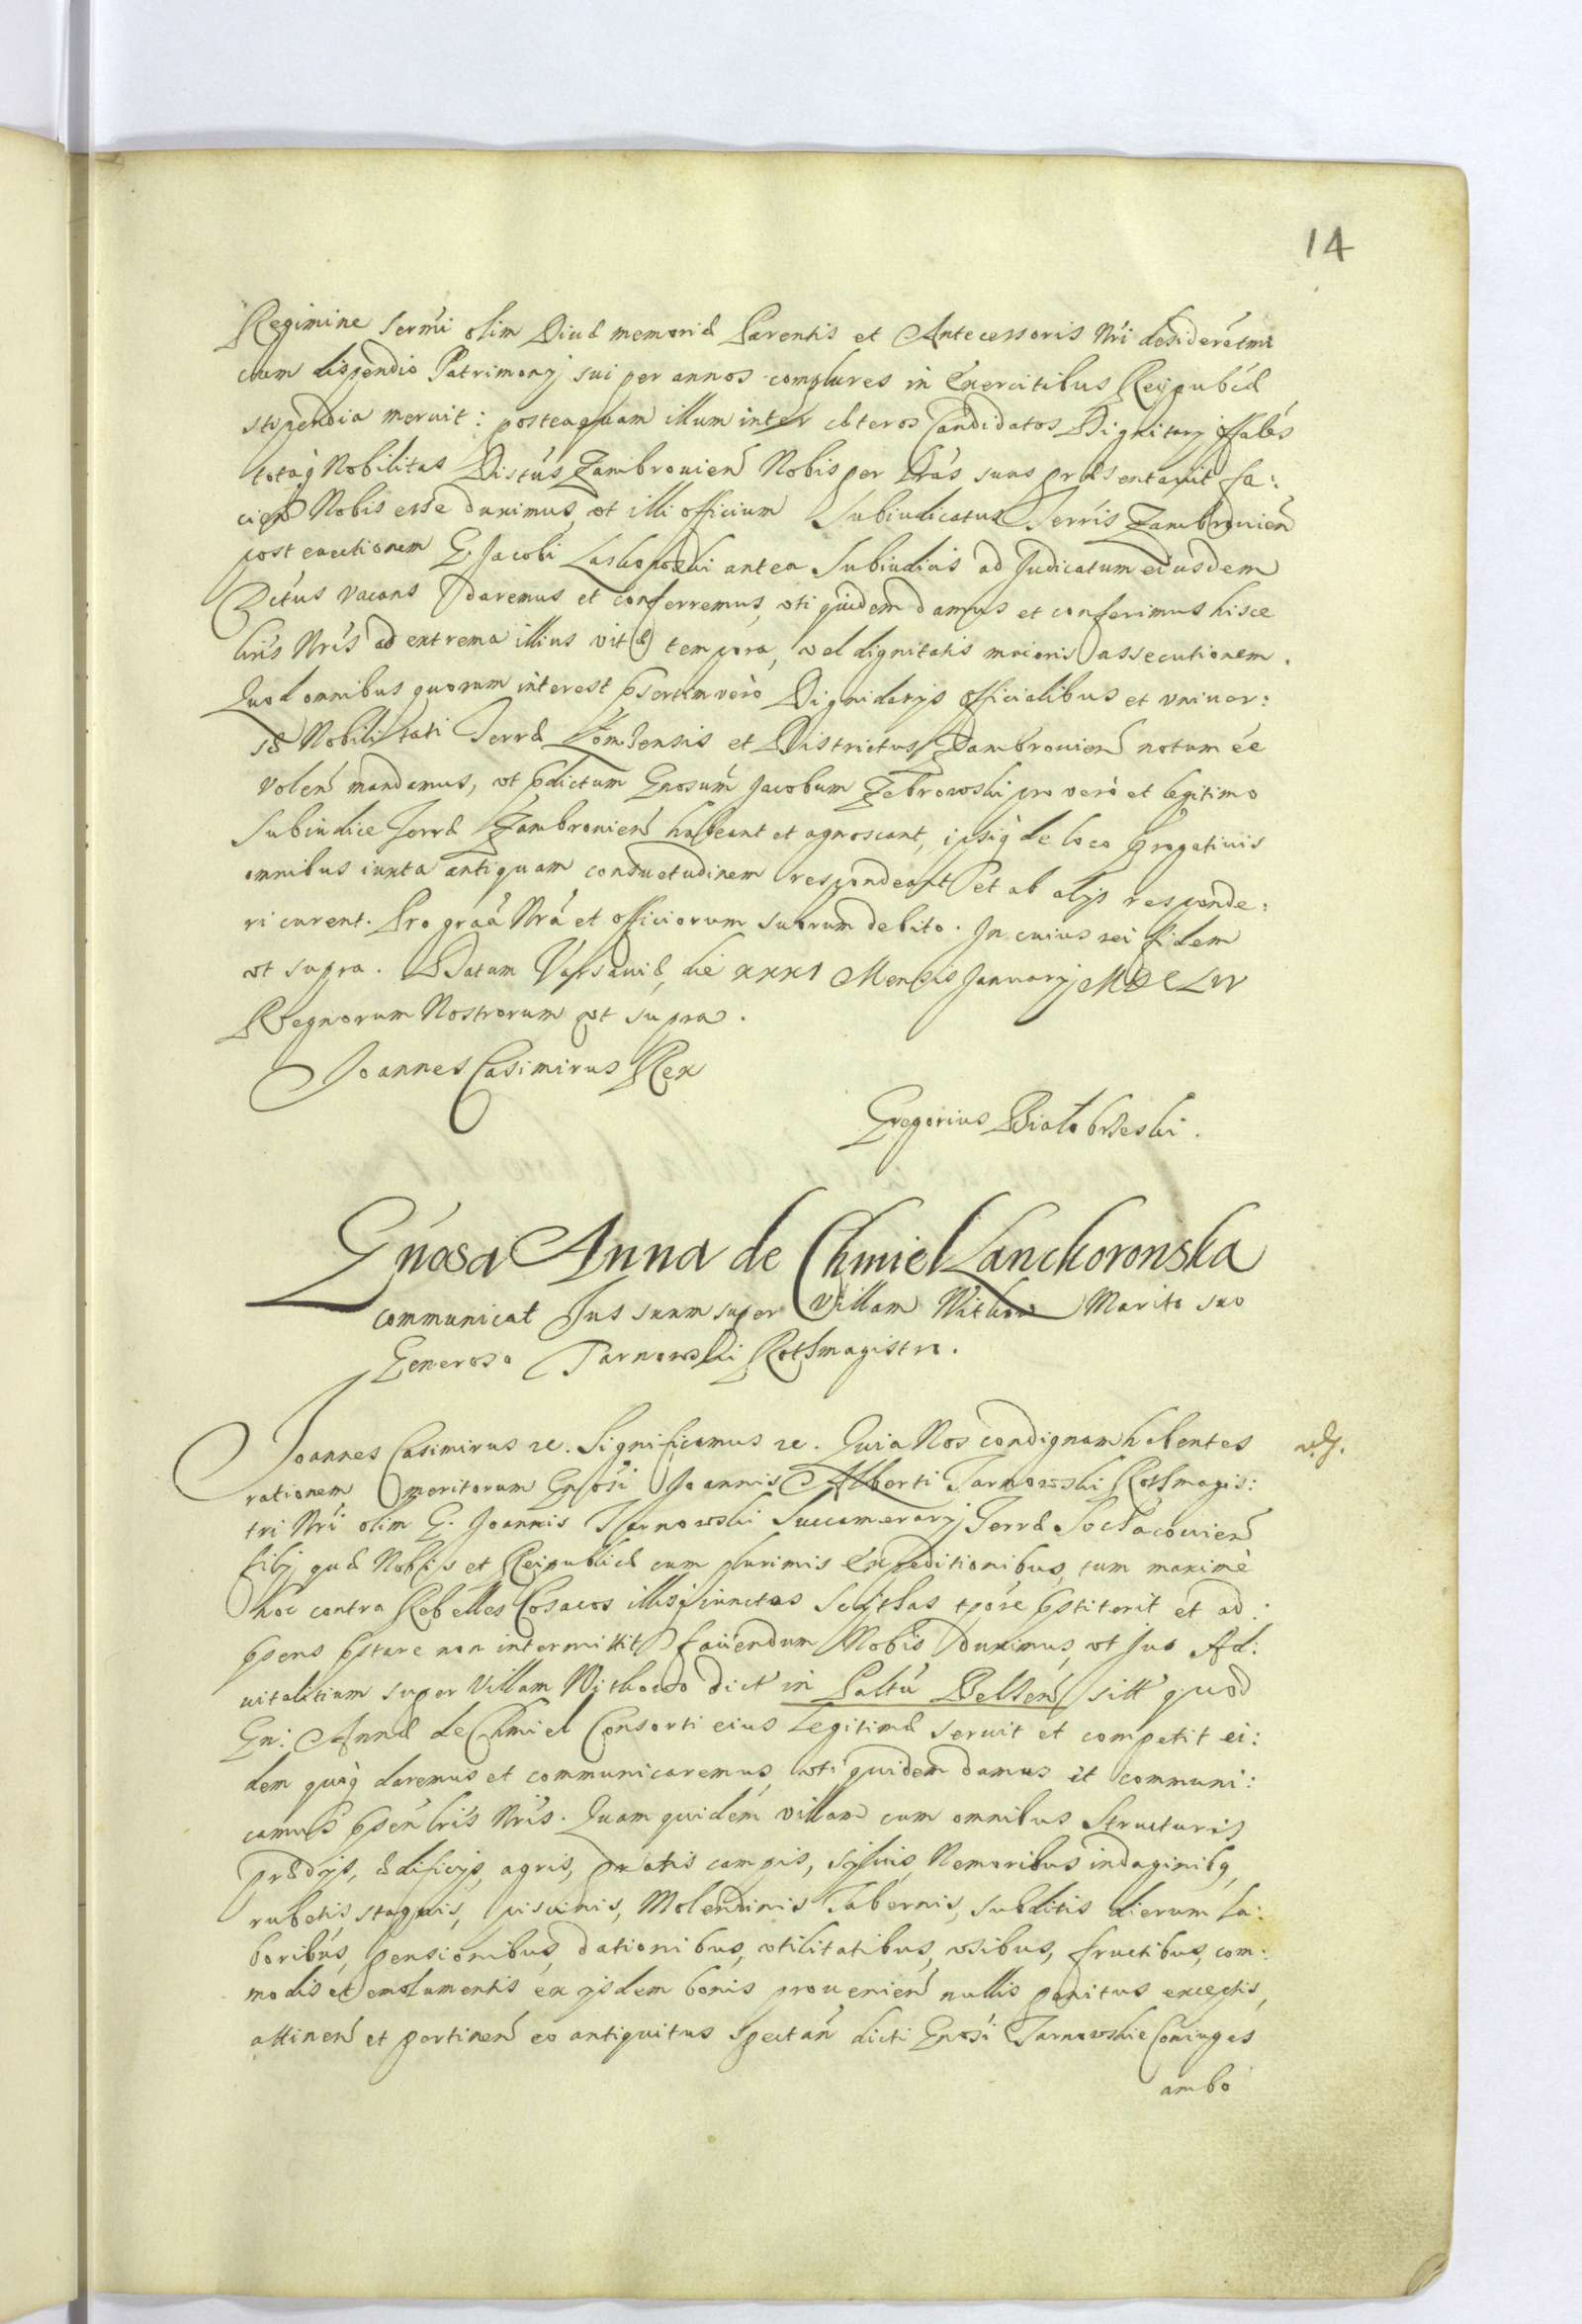 14
Regimine Sermi olim Diuæ memoriæ Parentis et Antecessoris Nri
cum dispendio Patrimonij sui per annos complures in Exercitibus Reipubcæ
stipendia meruit: posteaquam illum inter cæteros Candidatos Dignitarij offales
totaq Nobilitas Distus Zambrouien Nobis per Lras suas præsentauit fa:
cien Nobis esse duximus, vt illi officium Subiudicatus Terris Zambrouien
post euectionem G. Jacobi antea Subiudicis ad Judicatum eiusdem
Dctus vacans daremus et conferremus, vti quidem damus et conferimus hisce
lris Nris ad extrema illius vitæ tempora, vel dignitatis maioris assecutionem.
Quod omnibus quorum interest psertim vero Dignidarijs Officialibus et vniuer:
sæ Nobilitati Terræ Lomzensis et Districtus Zambrouien notum ee
volen mandamus, vt pdictum Gnosum Jacobum Zebrowski pro vero et legitimo
Subiudice Terræ Zambrouien habeant et agnoscant, ipsiq de loco progatiuis
omnibus iuxta antiquam consuetudinem respondeant et ab alijs responde:
ri curent. Pro graa Nra et officiorum suorum debito. In cuius rei fidem
vt supra. Datum Varsauiæ, die XXXI Mensis Januarij MDCLIV
Regnorum Nostrorum vt supra.
Joannes Casimirus Rex
Gregorius Białobrzeski.
Gnosa Anna de Chmiel Lanckoronska
communicat Jus suum super Villam Withow Marito suo
Generoso Tarnowski Rothmagistro.
Joannes Casimirus &c. Significamus &c. Quia Nos condignam habentes
rationem meritorum Gnosi Joannis Alberti Tarnowski Rothmagis:
tri Nri olim G. Joannis Tarnowski Succamerarij Terræ Sochaczouien
filij quæ Nobis et Reipublicæ cum plurimis Expeditionibus, tum maxime
hoc contra Rebelles Cosacos illisq iunctos Scithas tpore pstiterit et ad:
psens pstare non intermittit, faciendum Nobis duximus, vt Jus Ad:
uitalitium super Villam Withow dict in Paltu Belzen sitt quod
Gn: Annæ de Chmiel Consorti eius Legitimæ seruit et competit ei:
dem quoq daremus et communicaremus, vti quidem damus et communi:
camus psen lris Nris. Quam quidem villam cum omnibus Structuris
prædijs, ædificijs, agris, pratis campis, sijluis, Nemoribus indaginibq,
rubetis, stagnis, piscinis, Molendinis Tabernis, subditis dierum la:
boribus, pensionibus, dationibus, vtilitatibus, vsibus, fructibus, com:
modis et emolumentis ex ijsdem bonis prouenien nullis penitus exceptis,
attinen et pertinen eo antiquitus spectan dicti Gnosi Tarnowskie Coniuges
ambo